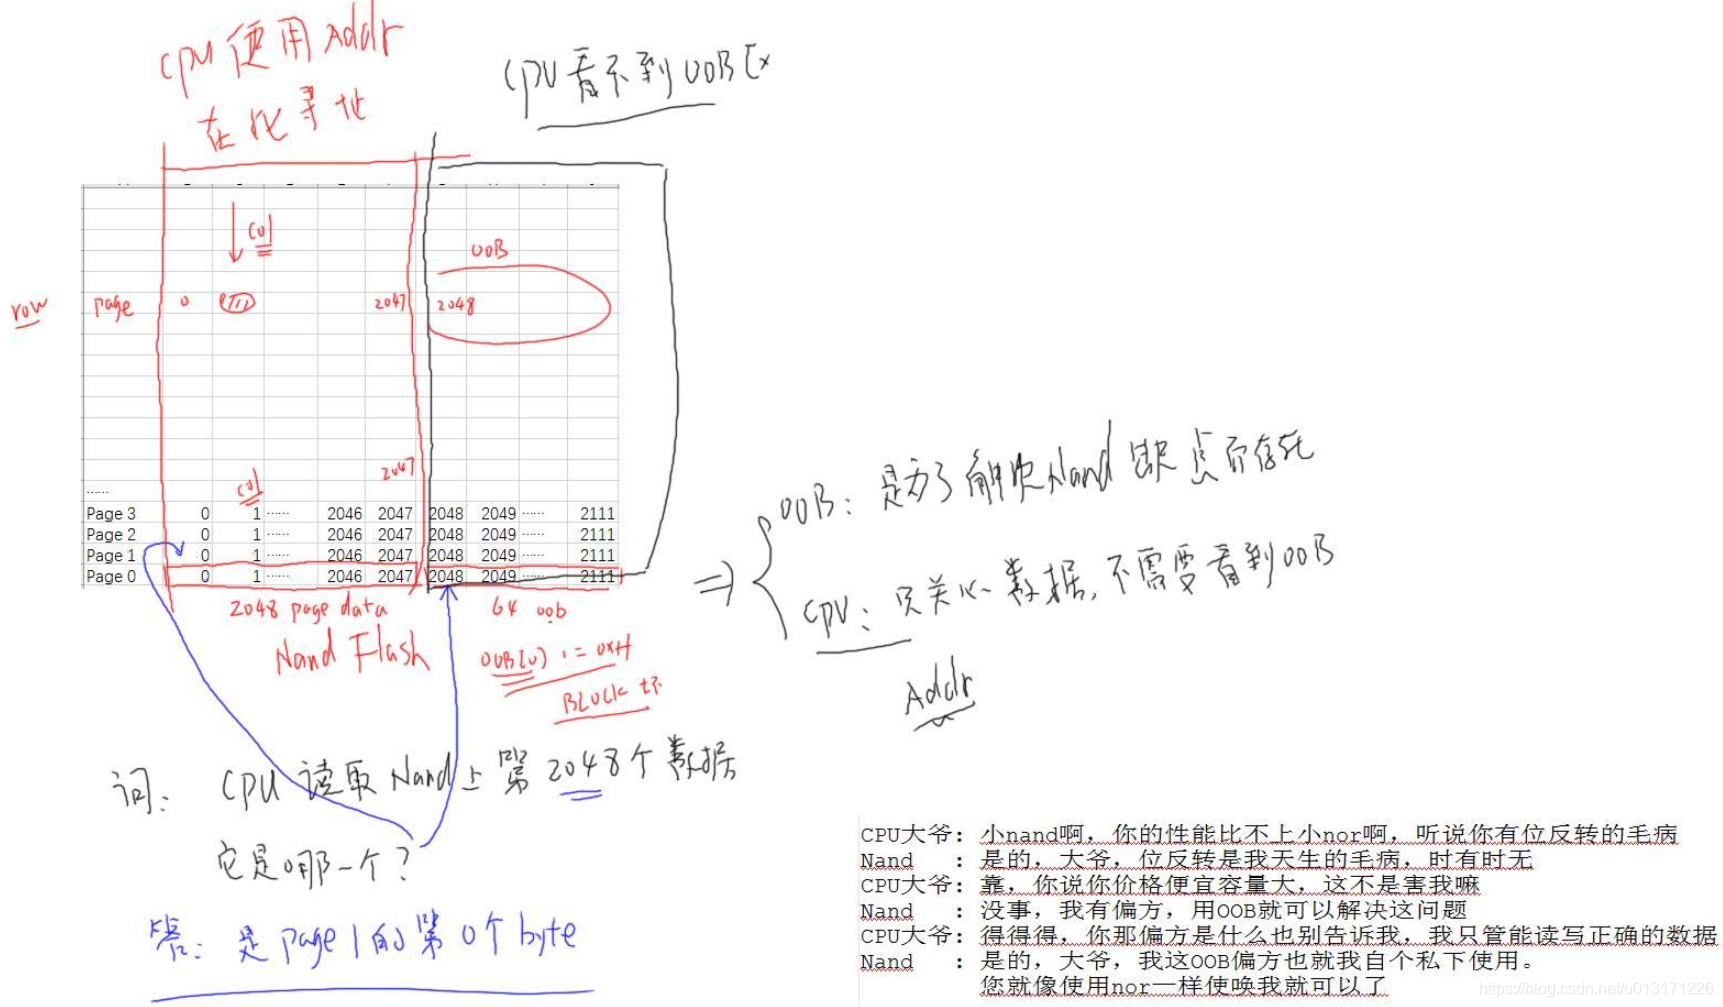 CPU使用Addr
在此寻址
CPU看不到OOB区
col
OOB
row page 0 2047 2048
2047
col
......
Page 3 0 1 ...... 2046 2047 2048 2049 ...... 2111
Page 2 0 1 ...... 2046 2047 2048 2049 ...... 2111
Page 1 0 1 ...... 2046 2047 2048 2049 ...... 2111
Page 0 0 1 ...... 2046 2047 2048 2049 ...... 2111
2048 page data 64 oob
Nand Flash
OOB(0) != 0xff
BLOCK 坏
OOB: 是为了解决Nand缺点而存在
CPU: 只关心数据,不需要看到OOB
Addr
问: CPU读取Nand上第2048个数据
它是哪一个?
答: 是page 1的第0个byte
CPU大爷: 小nand啊,你的性能比不上小nor啊,听说你有位反转的毛病
Nand : 是的,大爷,位反转是我天生的毛病,时有时无
CPU大爷: 靠,你说你价格便宜容量大,这不是害我嘛
Nand : 没事,我有偏方,用OOB就可以解决这问题
CPU大爷: 得得得,你那偏方是什么也别告诉我,我只管能读写正确的数据
Nand : 是的,大爷,我这OOB偏方也就我自个私下使用。
您就像使用nor一样使唤我就可以了
https://blog.csdn.net/u013171226